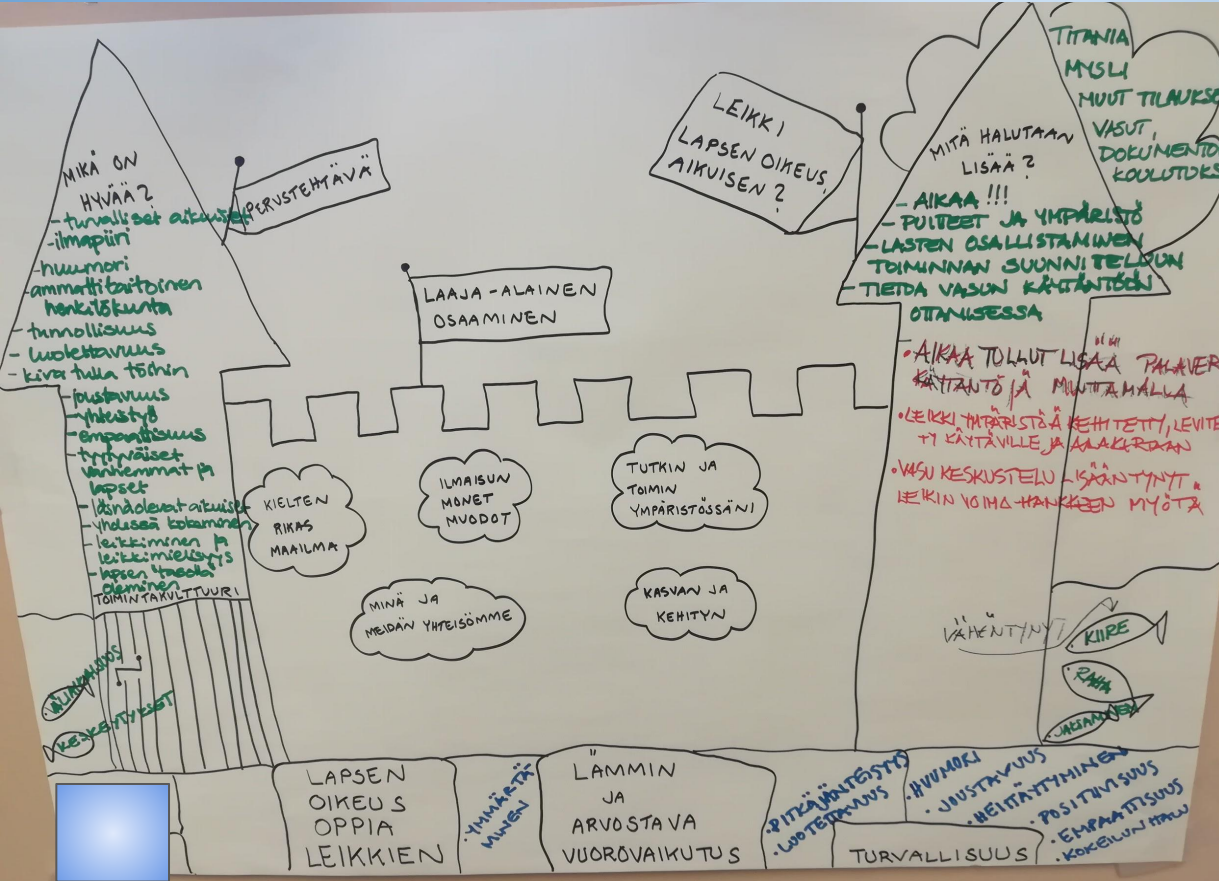 MIKÄ ON
HYVÄÄ?
- turvalliset aikuiset
- ilmapiiri
- huumori
- ammattitaitoinen
henkilökunta
- tunnollisuus
- luotettavuus
- kiva tulla töihin
- joustavuus
- yhteistyö
- empaattisuus
- tyytyväiset
vanhemmat ja
lapset
- läsnäolevat aikuiset
- yhdessä kokeminen
- leikkiminen ja
leikkimielisyys
- lapsen tasolla
oleminen
TOIMINTAKULTTUURI
KESKEYTYKSET
PERUSTEHTÄVÄ
LAAJA-ALAINEN
OSAAMINEN
LEIKKI
LAPSEN OIKEUS,
AIKUISEN?
KIELTEN
RIKAS
MAAILMA
ILMAISUN
MONET
MUODOT
TUTKIN JA
TOIMIN
YMPÄRISTÖSSÄNI
MINÄ JA
MEIDÄN YHTEISÖMME
KASVAN JA
KEHITYN
MITÄ HALUTAAN
LISÄÄ?
- AIKAA!!!
- PUITTEET JA YMPÄRISTÖ
- LASTEN OSALLISTAMINEN
TOIMINNAN SUUNNITELUUN
- TIETOA VASUN KÄYTÄNTÖÖN
OTTAMISESSA
TITANIA
MYSLI
MUUT TILAUKSE
VASUT,
DOKUMENTO
KOULUTUKS
• AIKAA TULLUT LISÄÄ PALAVER
KÄYTÄNTÖJÄ MUUTTAMALLA
• LEIKKIYMPÄRISTÖÄ KEHITETTY, LEVITE
TY KÄYTÄVILLE JA ALAKERTAAN
• VASU KESKUSTELU LISÄÄNTYNYT
LEIKIN VOIMA HANKKEEN MYÖTÄ
VÄHENTYNYT
KIIRE
RAHA
JAKSAMINEN
LAPSEN
OIKEUS
OPPIA
LEIKKIEN
• YMMÄRTÄ-
MINEN
LÄMMIN
JA
ARVOSTAVA
VUOROVAIKUTUS
• PITKÄJÄNTEISYYS
• LUOTETTAVUUS
TURVALLISUUS
• HUUMORI
• JOUSTAVUUS
• HEITTÄYTYMINEN
• POSITIIVISUUS
• EMPAATTISUUS
• KOKEILUN HALU